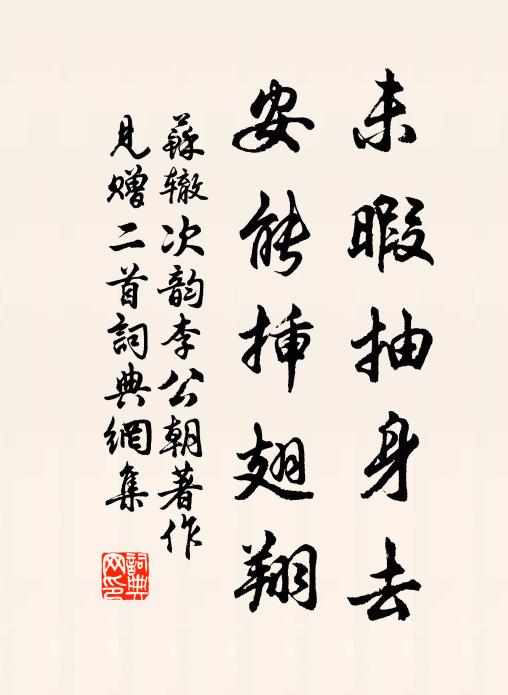 未暇抽身去
安能插翅翔
蘇辙次韵李公朝著作
見赠二首詞典網集
詞典
网印